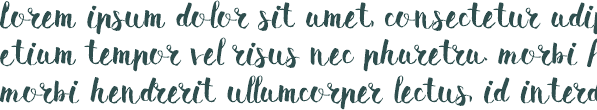 lorem ipsum dolor sit amet, consectetur adip
etium tempor vel risus nec pharetra. morbi h
morbi hendrerit ullamcorper lectus, id interd